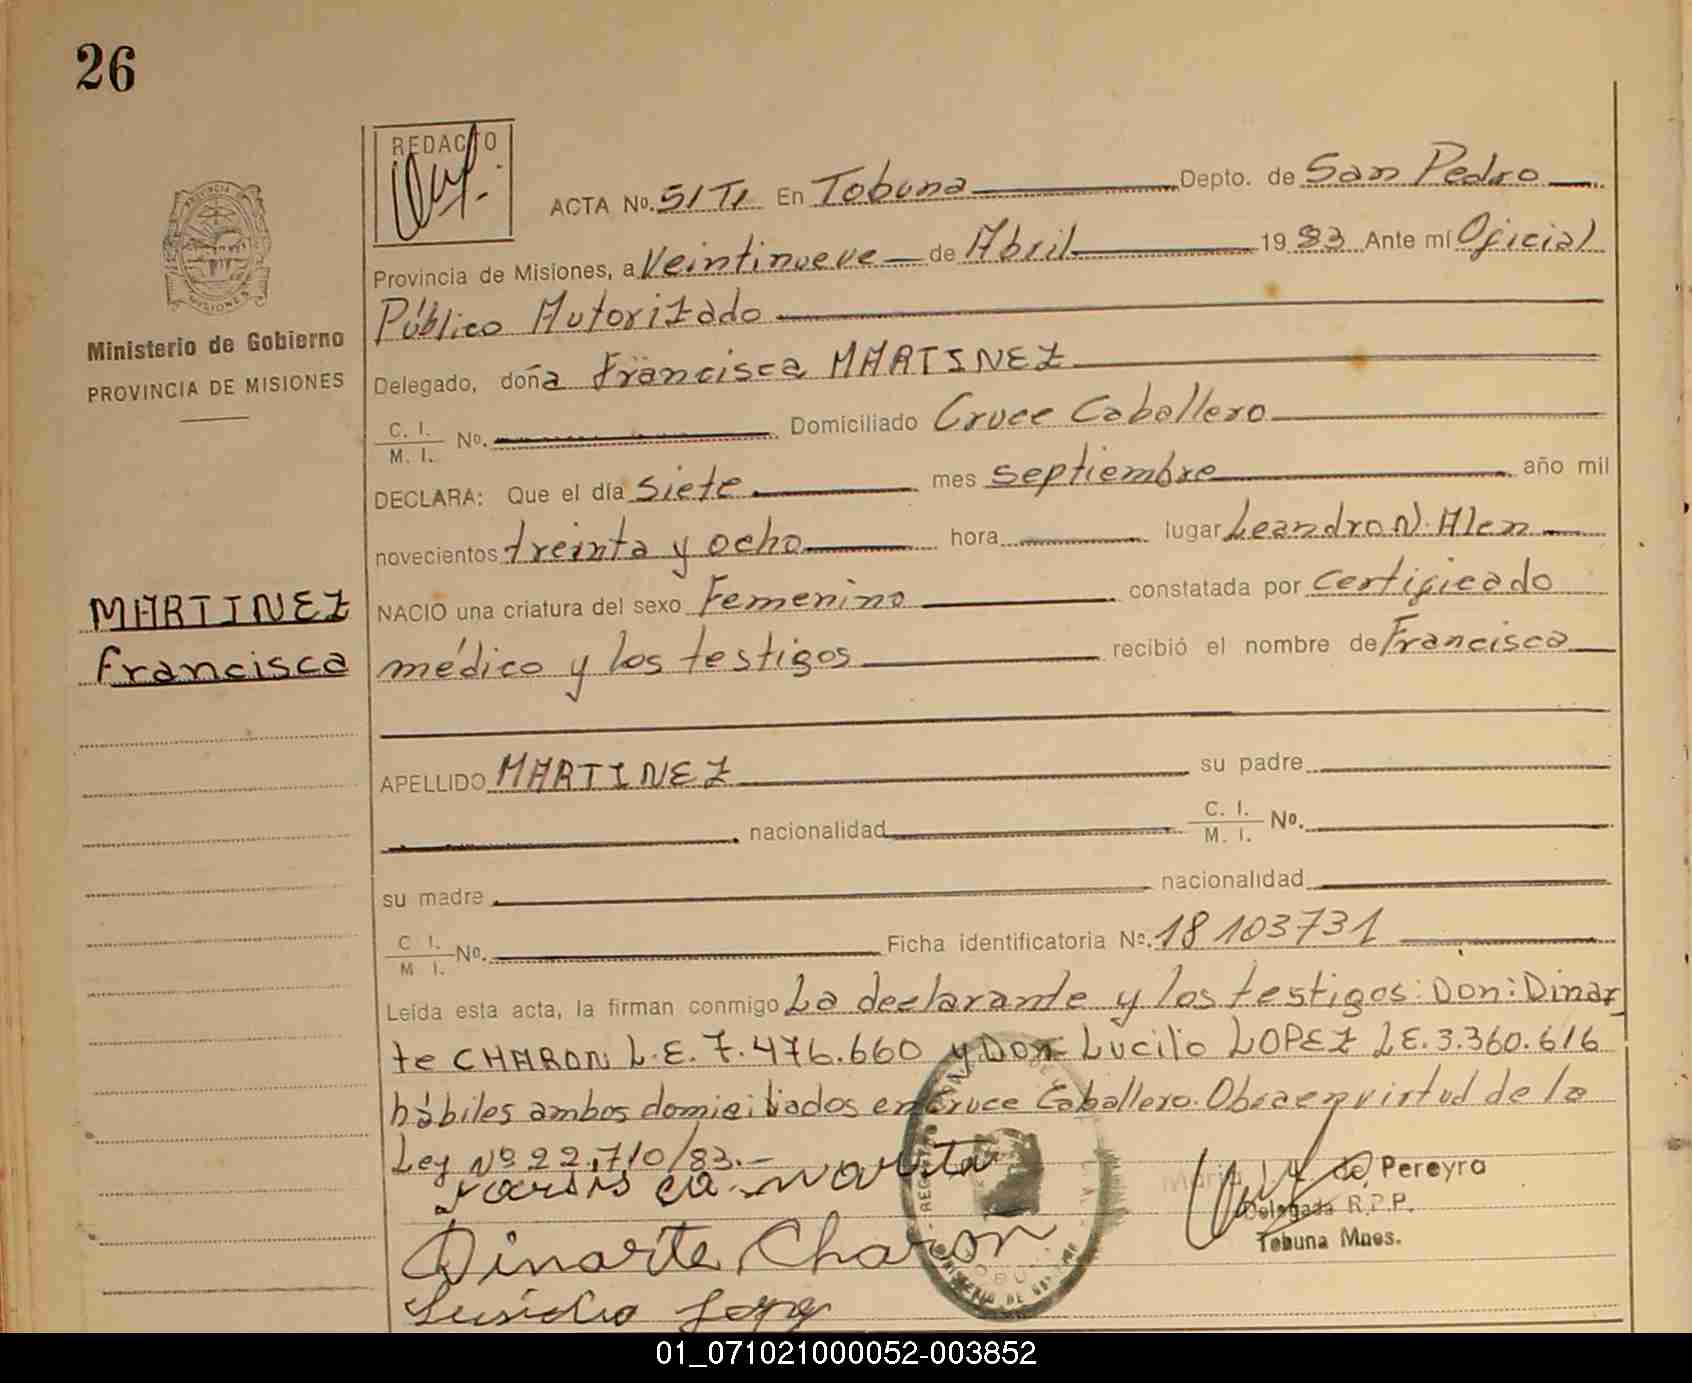 26
REDACTO
ACTA No. 51 TI En Tobuna Depto. de San Pedro
Provincia de Misiones, a Veintinueve de Abril 1983 Ante mí Oficial
Público Autorizado
Ministerio de Gobierno
PROVINCIA DE MISIONES
Delegado, doña Francisca MARTINEZ
C. I. M. I. No. Domiciliado Cruce Caballero
DECLARA: Que el día siete mes septiembre año mil
novecientos treinta y ocho hora lugar Leandro N. Alen
MARTINEZ
Francisca
NACIO una criatura del sexo Femenino constatada por certificado
médico y los testigos recibió el nombre de Francisca
APELLIDO MARTINEZ su padre
nacionalidad C. I. M. I. No.
su madre nacionalidad
C I. M I. No. Ficha identificatoria No. 18 103731
Leída esta acta, la firman conmigo La declarante y los testigos: Don: Dinar
te CHARON L.E. 7.476.660 y Don Lucilo LOPEZ LE. 3.360.616
hábiles ambos domiciliados en Cruce Caballero. Obra en virtud de la
Ley Nº 22.710/83.-
Dinarte Charon
de Pereyra
Delegada R.P.P.
Tobuna Mnes.
01_071021000052-003852